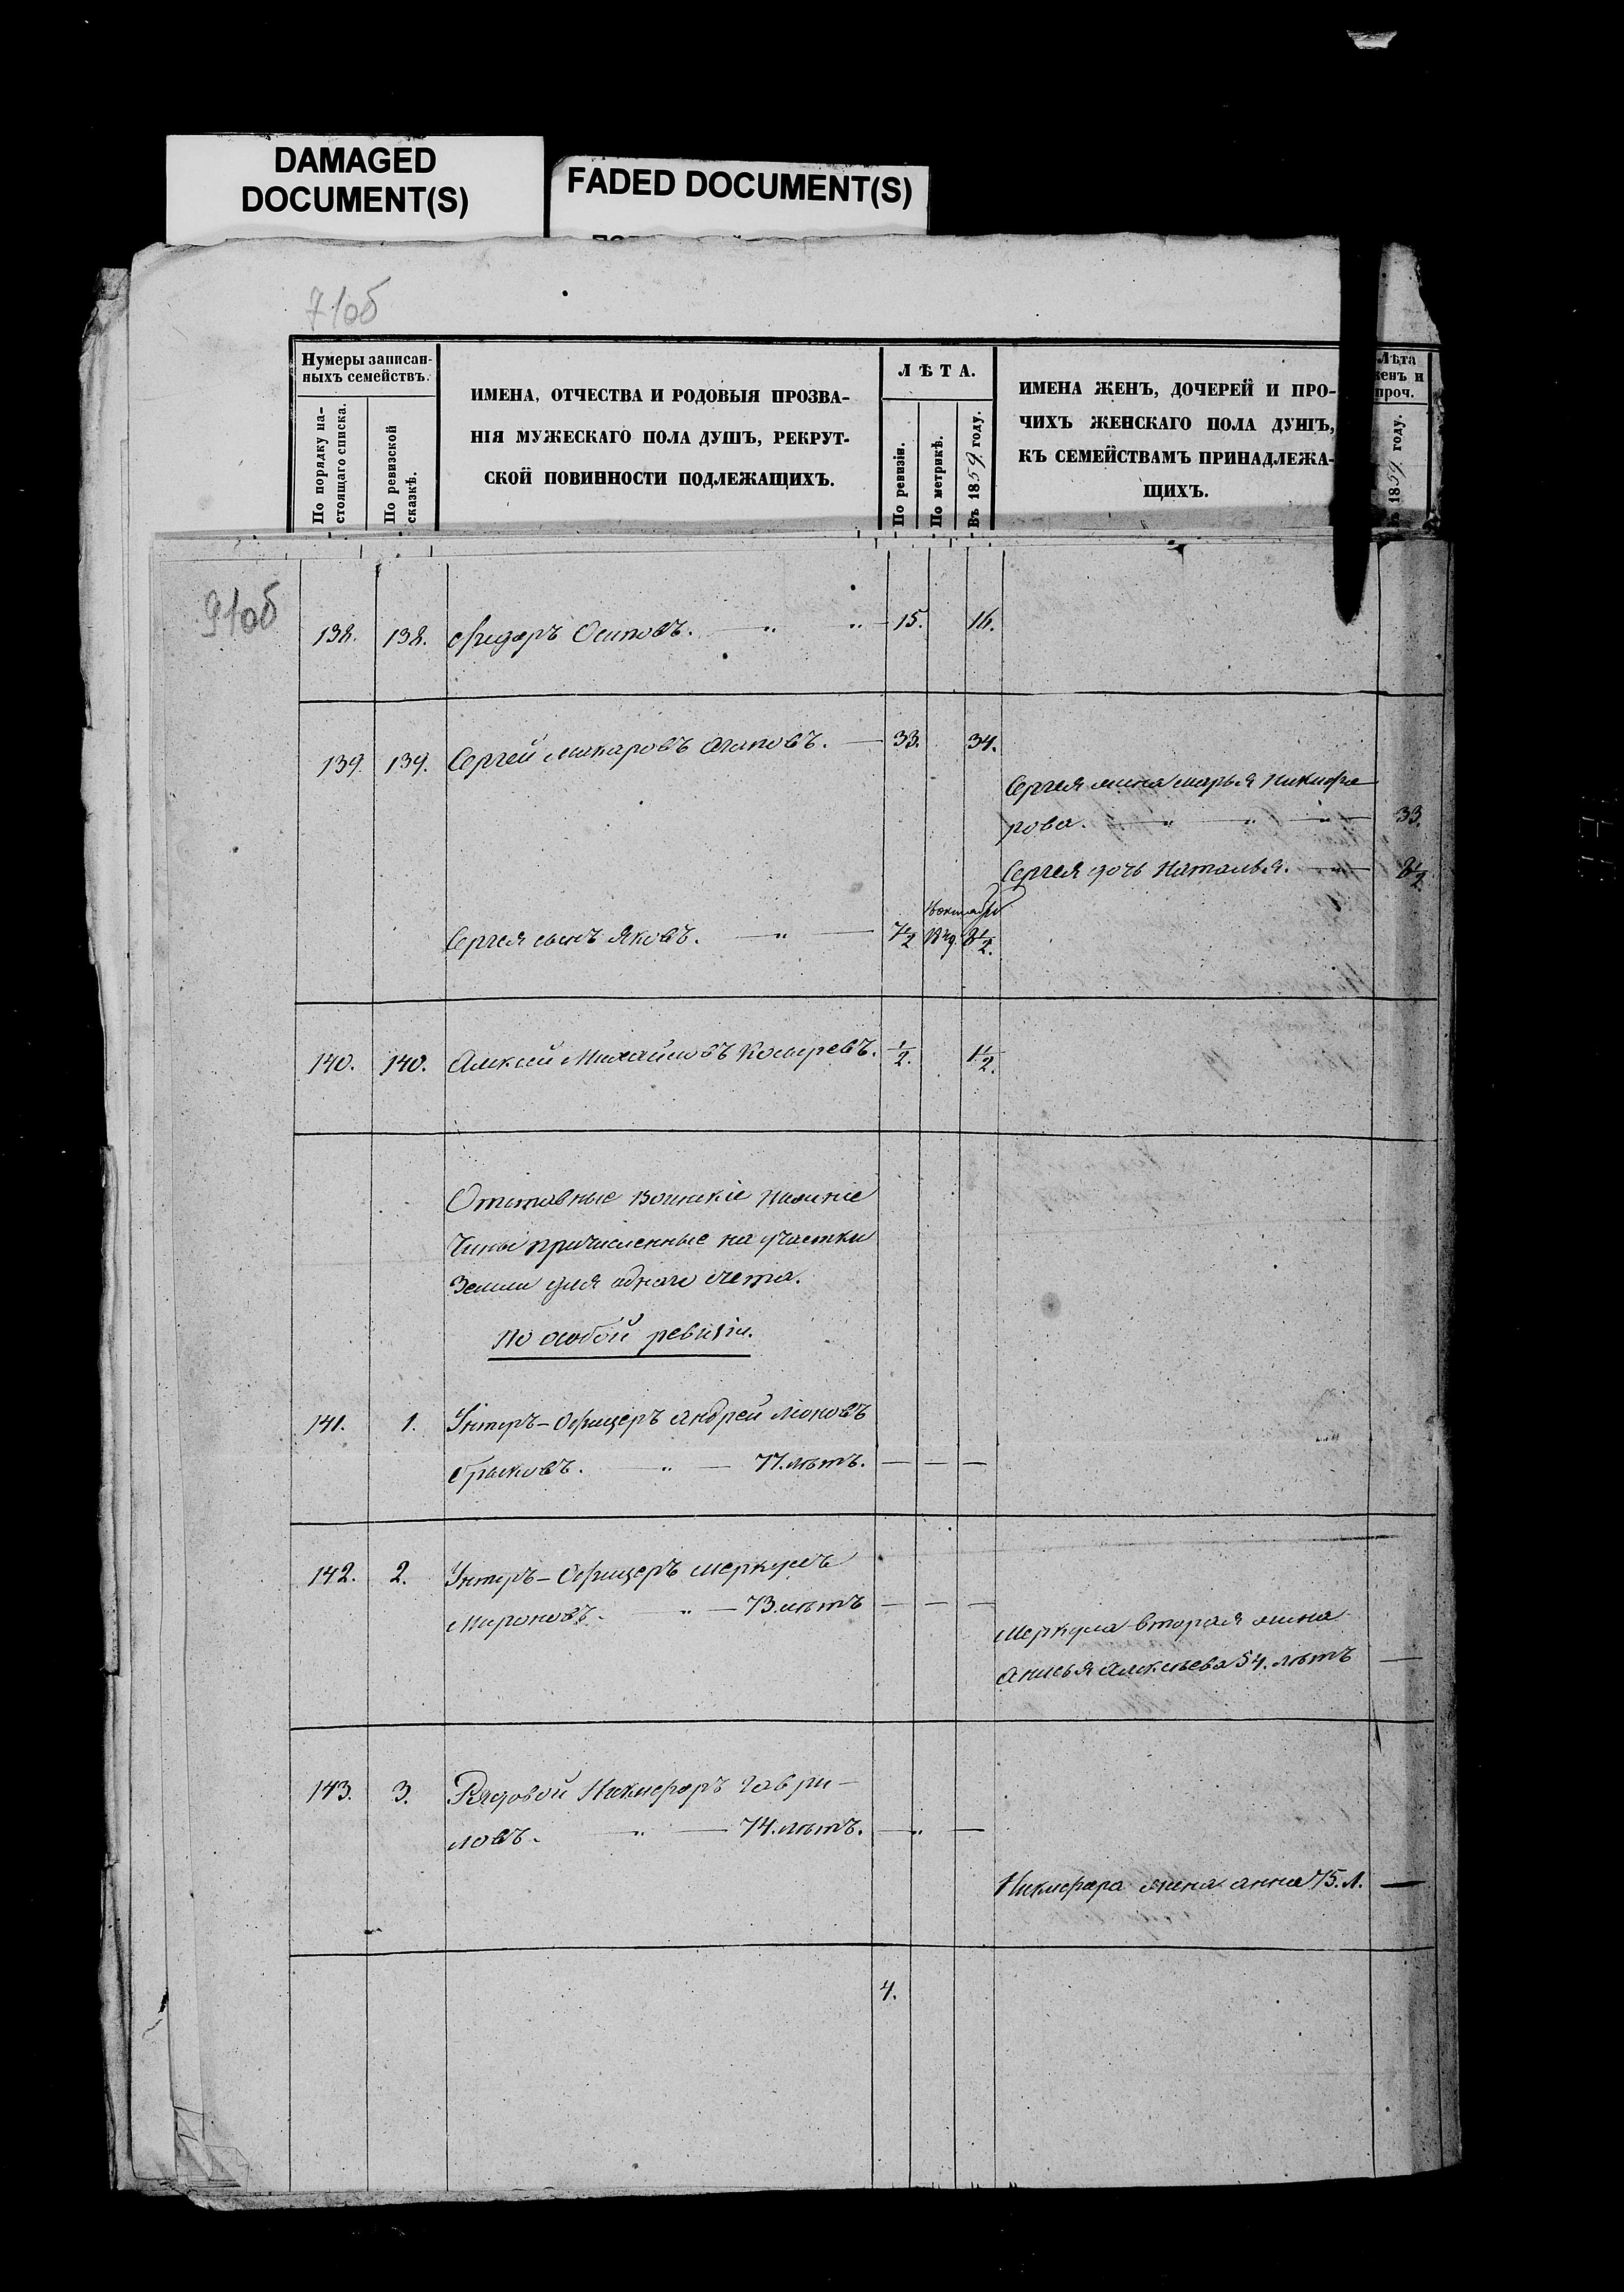 DAMAGED
DOCUMENT(S)
FADED DOCUMENT(S)
71об
Нумеры записан-
ныхъ семействъ.
По порядку на-
стоящаго списка.
По ревизской
сказкѣ.
ИМЕНА, ОТЧЕСТВА И РОДОВЫЯ ПРОЗВА-
НІЯ МУЖЕСКАГО ПОЛА ДУШЪ, РЕКРУТ-
СКОЙ ПОВИННОСТИ ПОДЛЕЖАЩИХЪ.
ЛѢТА.
По ревизіи.
По метрикѣ.
Въ 1859 году.
ИМЕНА ЖЕНЪ, ДОЧЕРЕЙ И ПРО-
ЧИХЪ ЖЕНСКАГО ПОЛА ДУШЪ,
КЪ СЕМЕЙСТВАМЪ ПРИНАДЛЕЖА-
ЩИХЪ.
Лѣта
женъ и
проч.
1859 году.
91об
138. 138. Федоръ Осиповъ. — „ „ — 15. 16.
139. 139. Сергей Макаровъ Агаповъ. — 33. 34.
Сергея жена Марья Никифо
рова. — „ — „ — „ — 33.
Сергея дочь Наталья. — 8½
Сергея сынъ Яковъ. — „ — 7½ 1849. 8½.
140. 140. Алексей Михайловъ Косыревъ. ½. 1½.
Отставные Воинскіе Нижніе
Чины причисленные на участки
Земли для одного счета.
По особой ревизіи.
141. 1. Унтеръ-Офицеръ Андрей Ліоновъ
— „ — 77. лѣтъ. — — —
142. 2. Унтеръ-Офицеръ Меркулъ
Мироновъ. — „ — 73. лѣтъ — — —
Меркула вторая жена
Анисья Алексѣева 54. лѣтъ —
143. 3. Рядовой Никифоръ Гаври-
ловъ. — „ — 74. лѣтъ. — „ —
Никифора жена Анна 75. л. —
4.